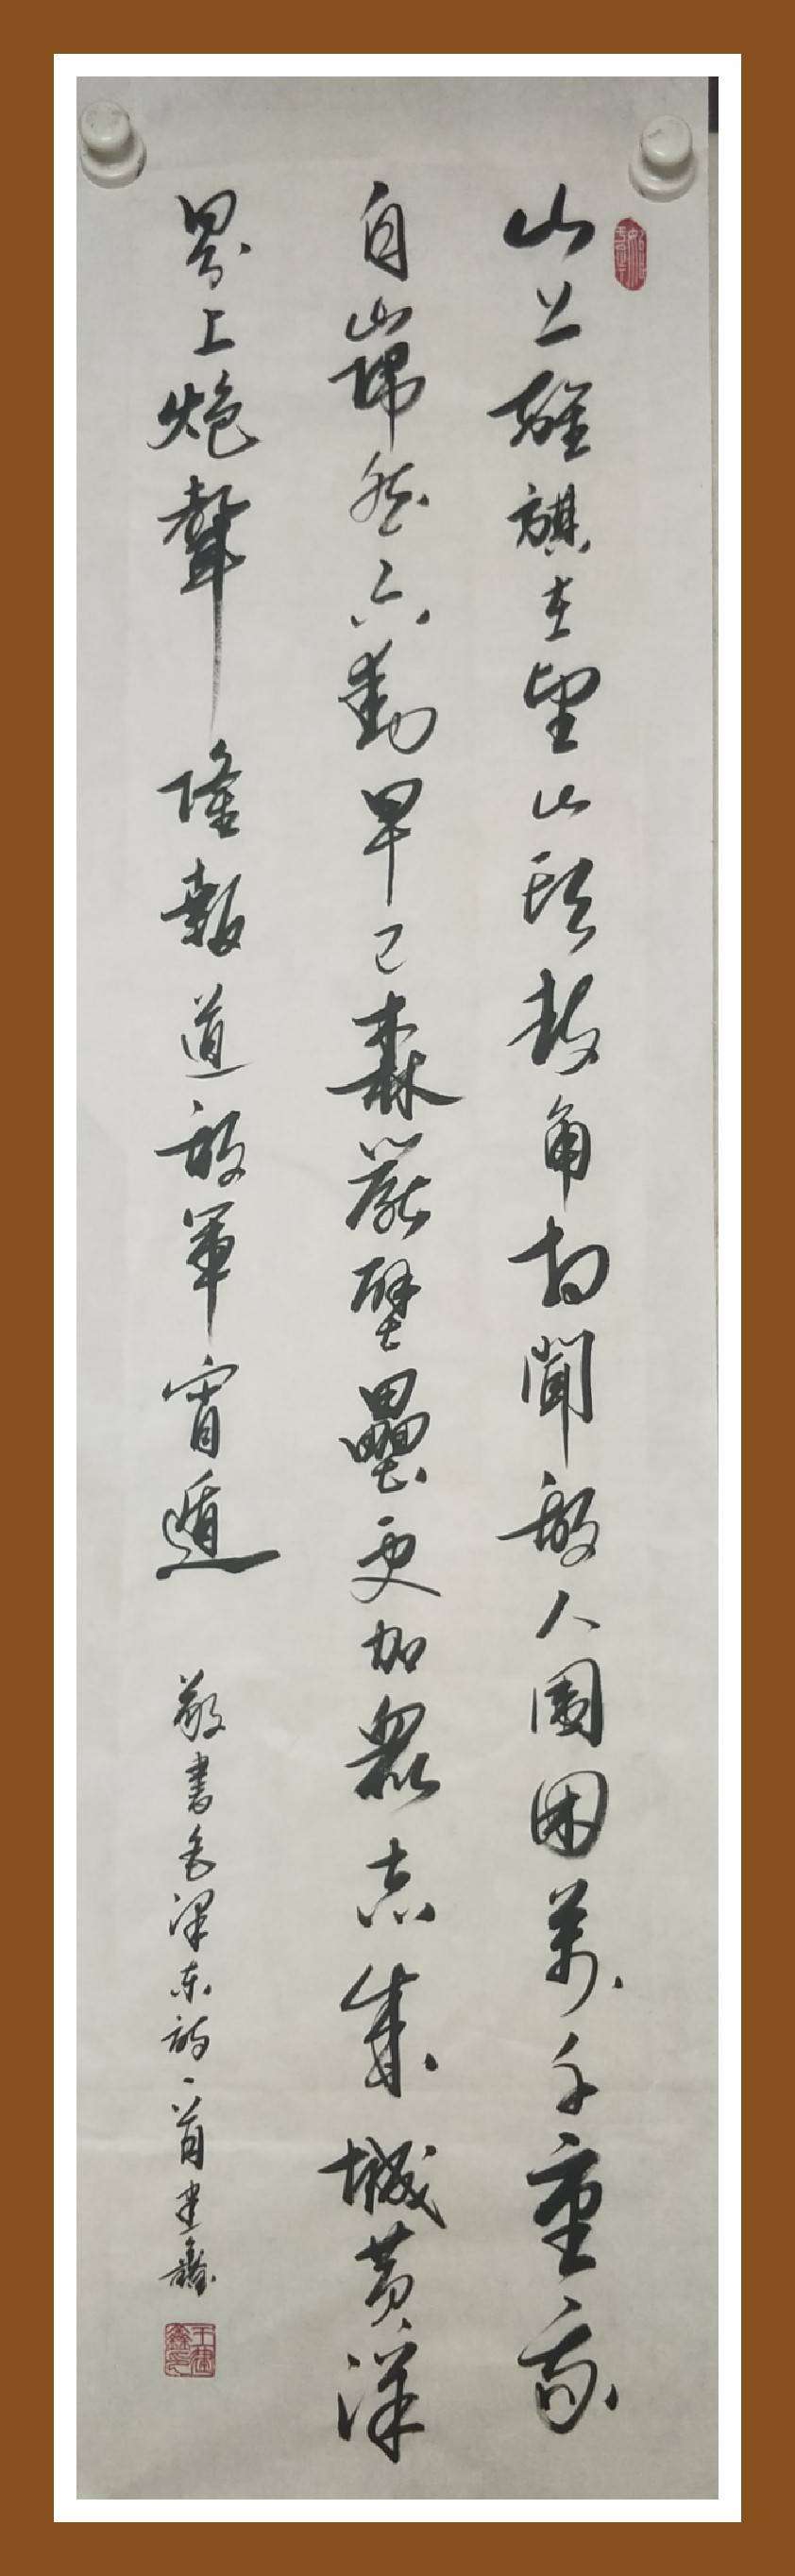 山下旌旗在望山頭鼓角相聞敵人圍困萬千重我
自巋然不動早已森嚴壁壘更加眾志成城黄洋
界上炮聲隆報道敵軍宵遁
敬書毛澤東詩一首建鑫
王建鑫印